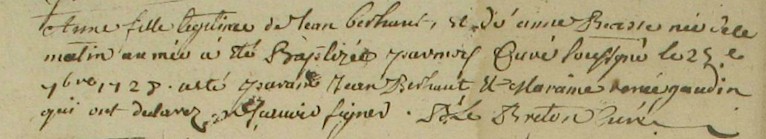 Anne fille legitime de Jean berhaut, et d'anne Brasse née dece
matin aumée a été Baptizée par moy Curé soussigné le 25 e
7bre 1728. a été parain Jean Berhaut et Maraine renée gaudin
qui ont declarez ne scavoir signer. Le Breton Curé